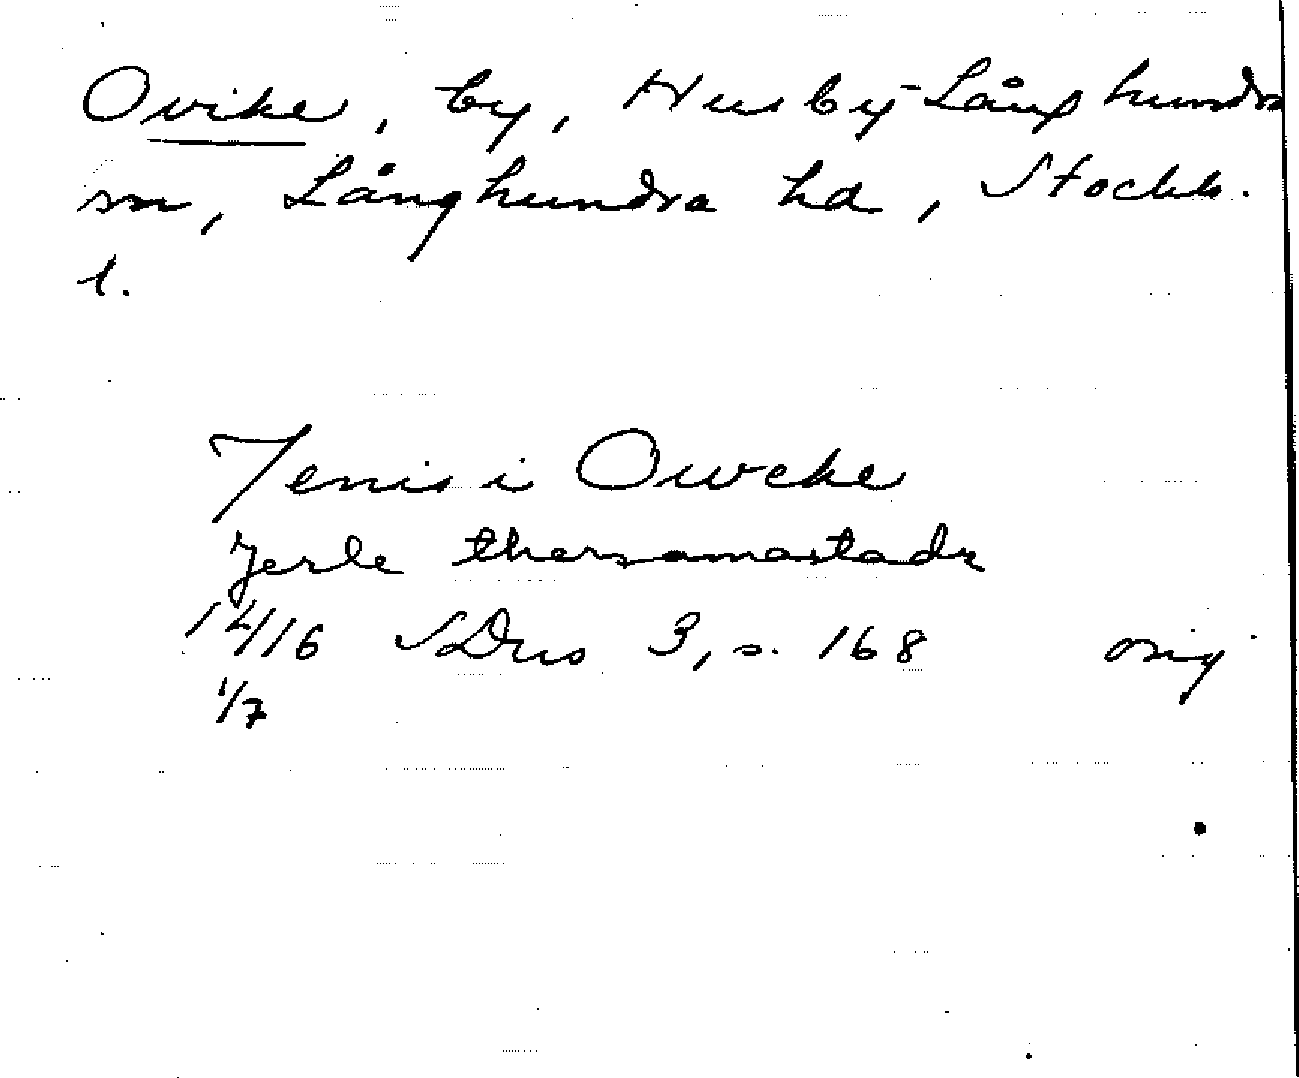 Ovike, by, Husby-Långhundra
sn, Långhundra hd, Stockh.
l.
Jenis i Owcke
Jerle thersamastadz
1416 SDns 3, s. 168 orig
1/7